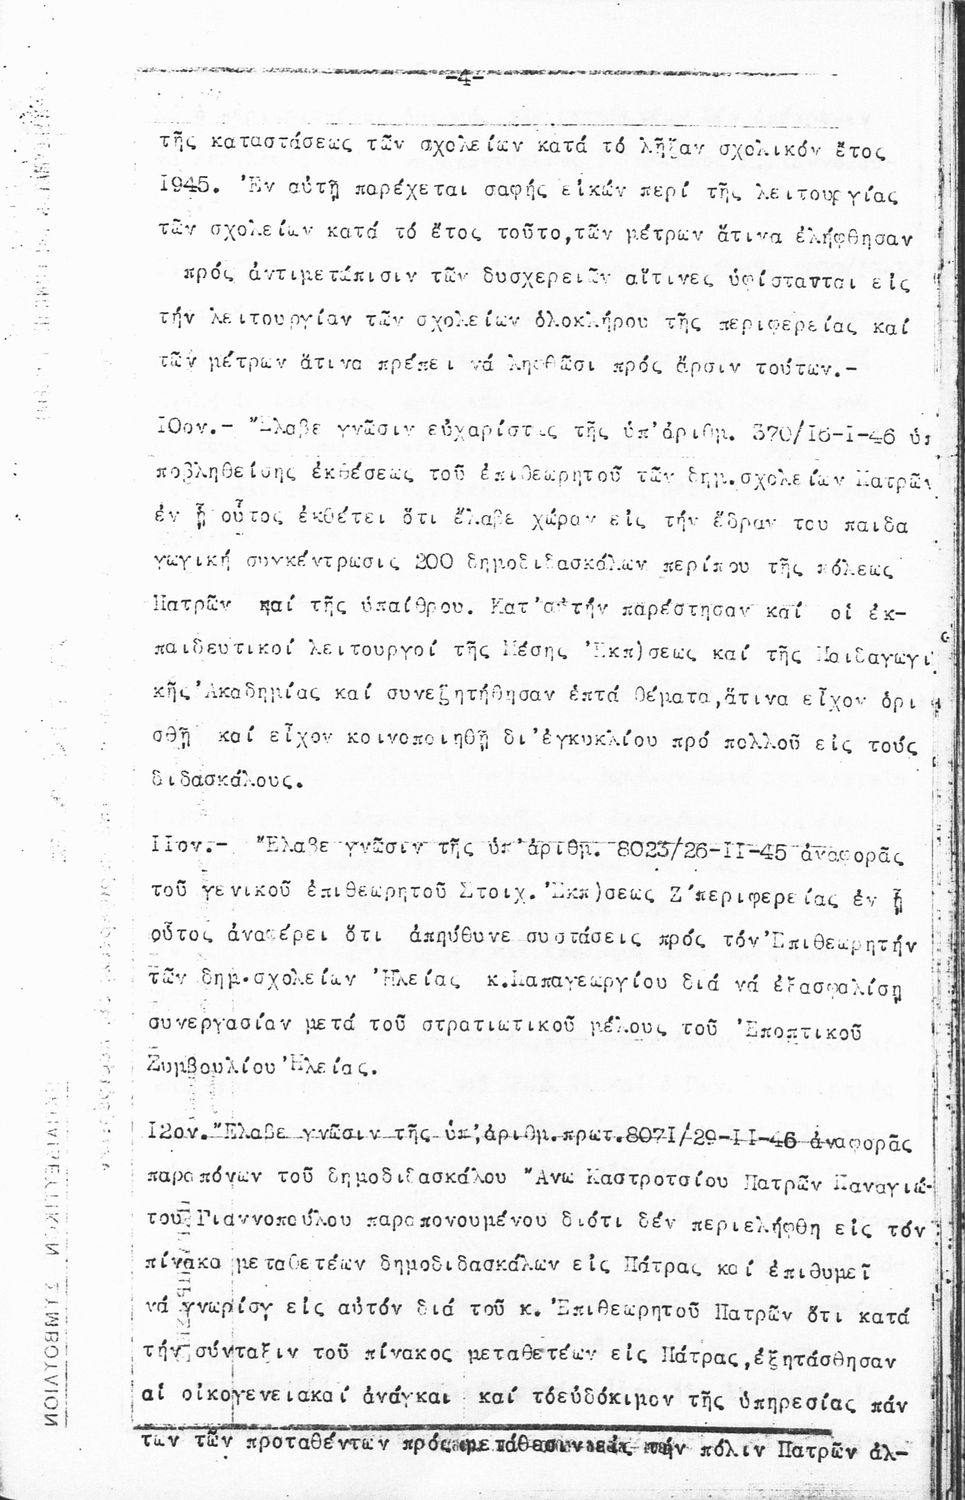 -4-
τῆς καταστάσεως τῶν σχολείων κατά τό λῆξαν σχολικόν ἔτος
1945. Ἐν αὐτῇ παρέχεται σαφής εἰκών περί τῆς λειτουργίας
τῶν σχολείων κατά τό ἔτος τοῦτο,τῶν μέτρων ἅτινα ἐλήφθησαν
πρός ἀντιμετώπισιν τῶν δυσχερειῶν αἵτινες ὑφίστανται εἰς
τήν λειτουργίαν τῶν σχολείων ὁλοκλήρου τῆς περιφερείας καί
τῶν μέτρων ἅτινα πρέπει νά ληφθῶσι πρός ἄρσιν τούτων.-
10ον.- Ἔλαβε γνῶσιν εὐχαρίστως τῆς ὑπ'ἀριθμ. 370/16-1-46 ὑ
ποβληθείσης ἐκθέσεως τοῦ ἐπιθεωρητοῦ τῶν δημ.σχολείων Πατρῶν
ἐν ᾗ οὗτος ἐκθέτει ὅτι ἔλαβε χώραν εἰς τήν ἕδραν του παιδα
γωγική συγκέντρωσις 200 δημοδιδασκάλων περίπου τῆς πόλεως
Πατρῶν καί τῆς ὑπαίθρου. Κατ'αὐτήν παρέστησαν καί οἱ ἐκ-
παιδευτικοί λειτουργοί τῆς Μέσης Ἐκπ)σεως καί τῆς Παιδαγωγι
κῆς Ἀκαδημίας καί συνεζητήθησαν ἑπτά θέματα,ἅτινα εἶχον ὁρι
σθῇ καί εἶχον κοινοποιηθῇ δι'ἐγκυκλίου πρό πολλοῦ εἰς τούς
διδασκάλους.
11ον.- Ἔλαβε γνῶσιν τῆς ὑπ'ἀριθμ. 8023/26-11-45 ἀναφορᾶς
τοῦ γενικοῦ ἐπιθεωρητοῦ Στοιχ.Ἐκπ)σεως Ζ'περιφερείας ἐν ᾗ
οὗτος ἀναφέρει ὅτι ἀπηύθυνε συστάσεις πρός τόν Ἐπιθεωρητήν
τῶν δημ.σχολείων Ἠλείας κ.Παπαγεωργίου διά νά ἐξασφαλίσῃ
συνεργασίαν μετά τοῦ στρατιωτικοῦ μέλους τοῦ Ἐποπτικοῦ
Συμβουλίου Ἠλείας.
12ον.Ἔλαβε γνῶσιν τῆς ὑπ'ἀριθμ.πρωτ.8071/29-11-46 ἀναφορᾶς
παραπόνων τοῦ δημοδιδασκάλου Ἄνω Καστροτσίου Πατρῶν Παναγιώ-
του Γιαννοπούλου παραπονουμένου διότι δέν περιελήφθη εἰς τόν
πίνακα μεταθετέων δημοδιδασκάλων εἰς Πάτρας καί ἐπιθυμεῖ
νά γνωρίσῃ εἰς αὐτόν διά τοῦ κ. Ἐπιθεωρητοῦ Πατρῶν ὅτι κατά
τήν σύνταξιν τοῦ πίνακος μεταθετέων εἰς Πάτρας,ἐξητάσθησαν
αἱ οἰκογενειακαί ἀνάγκαι καί τόεὐδόκιμον τῆς ὑπηρεσίας πάν
των τῶν προταθέντων πρός μετάθεσιν εἰς τήν πόλιν Πατρῶν ἀλ-
ΣΥΜΒΟΥΛΙΟΝ